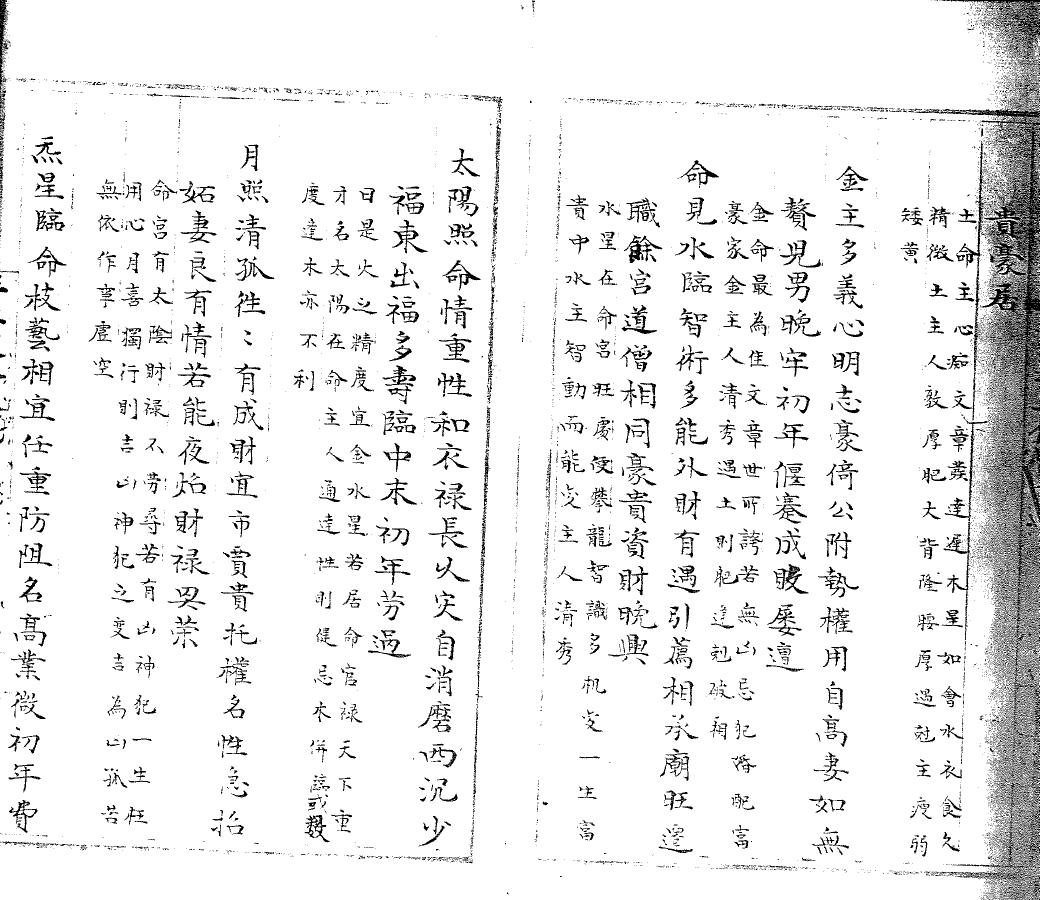 貴豪居
土命主心痴文章蕟達遲木星如會水衣食久
精微土主人敦厚肥大背隆腰厚過尅主瘦弱
矮黄
金主多義心明志豪倚公附勢權用自高妻如無
贅見男晚牢初年偃蹇成敗屡邅
金命最為佳文章世所誇若無凶忌犯婚配富
豪家金主人清秀遇土則肥逢剋破相
命見水臨智術多能外財有遇引薦相承廟旺遷
職餘宮道僧相同豪貴資財晚興
水星在命宮旺慶便攀龍智識多机变一生富
貴中水主智動而能变主人清秀
太陽照命情重性和衣禄長久灾自消磨西沉少
福東出福多壽臨中末初年劳過
日是火之精度宜金水星若居命官禄天下重
才名太陽在命主人通達性則促忌木併臨或数
度達木亦不利
月照清孤徃〻有成財宜市賈貴托權名性急招
妬妻良有情若能夜焰財禄男荣
命宫有太陰財禄不劳尋若有凶神犯一生枉
用心月喜獨行則吉凶神犯之变吉為凶孤苦
無依作事虚空
炁星臨命枝藝相宜任重防阻名高業微初年費